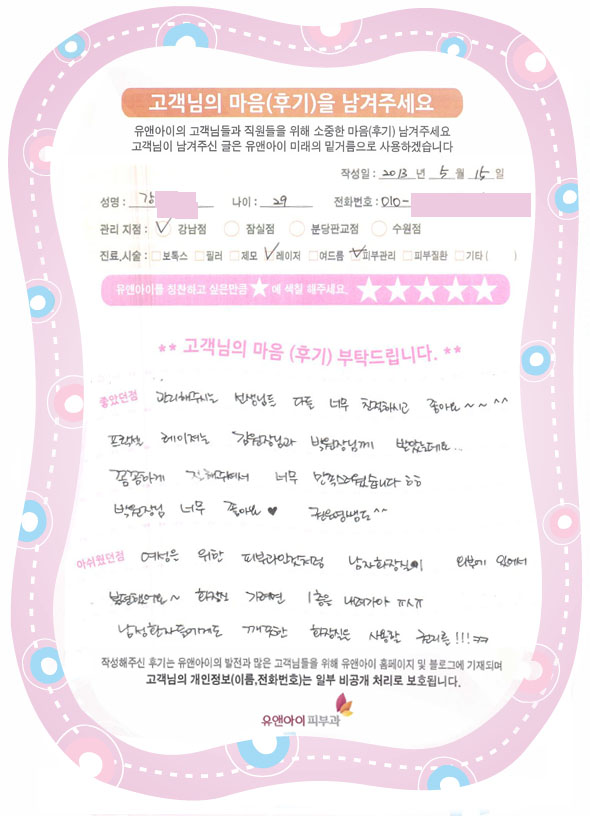 고객님의 마음(후기)을 남겨주세요
유앤아이의 고객님들과 직원들을 위해 소중한 마음(후기) 남겨주세요
고객님이 남겨주신 글은 유앤아이 미래의 밑거름으로 사용하겠습니다
작성일 : 2013 년 5 월 15 일
성명 : 강 나이 : 29 전화번호 : 010-
관리 지점 : 강남점 잠실점 분당판교점 수원점
진료,시술 : 보톡스 필러 제모 레이저 여드름 피부관리 피부질환 기타 ( )
유앤아이를 칭찬하고 싶은만큼 ★ 에 색칠 해주세요. ★★★★★
** 고객님의 마음 (후기) 부탁드립니다. **
좋았던점 관리해주시는 선생님들 다들 너무 친절하시고 좋아요~~^^
프락셔 레이저는 김원장님과 박원장님께 받았는데요..
꼼꼼하게 잘해주셔서 너무 만족스러웠습니다 ㅎㅎ
박원장님 너무 좋아요 ♥ 권원영쌤도^^
아쉬웠던점 여성은 위한 피부과인것처럼 남자화장실이 외부에 있어서
불편했어요~ 화장실 가려면 1층은 내려가야 ㅠㅅㅠ
남성환자들에게도 깨끗한 화장실은 사용할 권리를!!! ㅋㅋ
작성해주신 후기는 유앤아이의 발전과 많은 고객님들을 위해 유앤아이 홈페이지 및 블로그에 기재되며
고객님의 개인정보(이름,전화번호)는 일부 비공개 처리로 보호됩니다.
유앤아이피부과